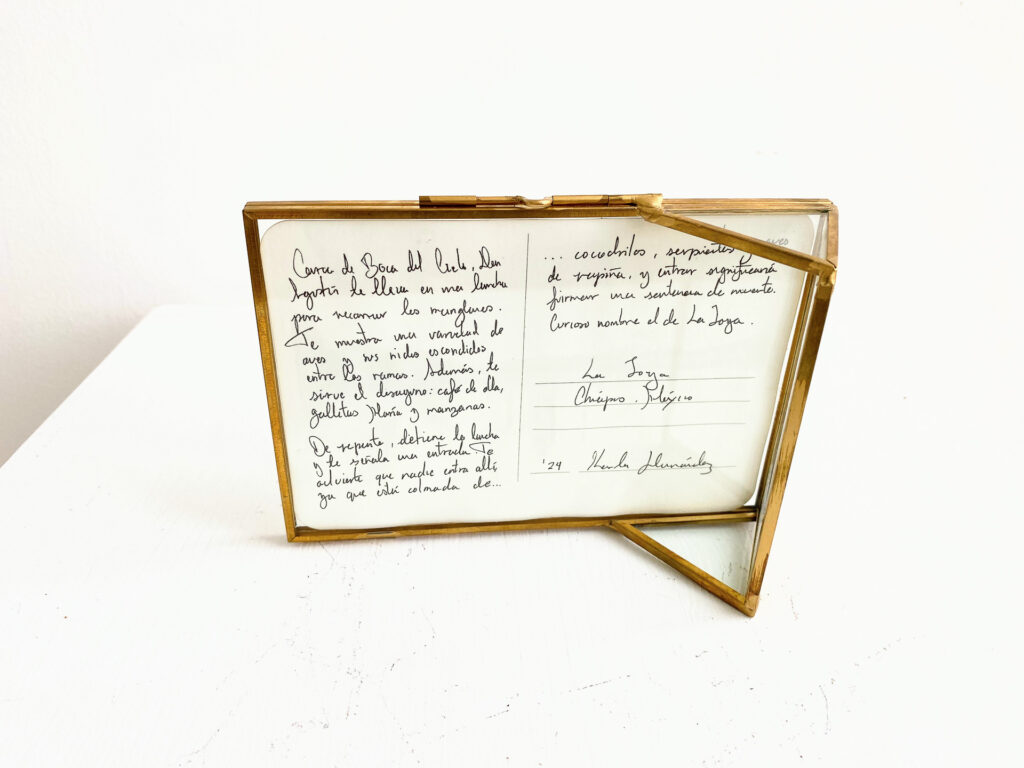 Cerca de Boca del Cielo, Don
Agustín te lleva en una lancha
para recorrer los manglares.
Te muestra una variedad de
aves y sus nidos escondidos
entre las ramas. Además, te
sirve el desayuno: café de olla,
galletitas María y manzanas.
De repente, detiene la lancha
y te señala una entrada. Te
advierte que nadie entra allí
ya que está colmada de...
... cocodrilos, serpientes
de rapiña, y entrar significaría
firmar una sentencia de muerte.
Curioso nombre el de La Joya.
La Joya
Chiapas, México
'24 Karla Hernández